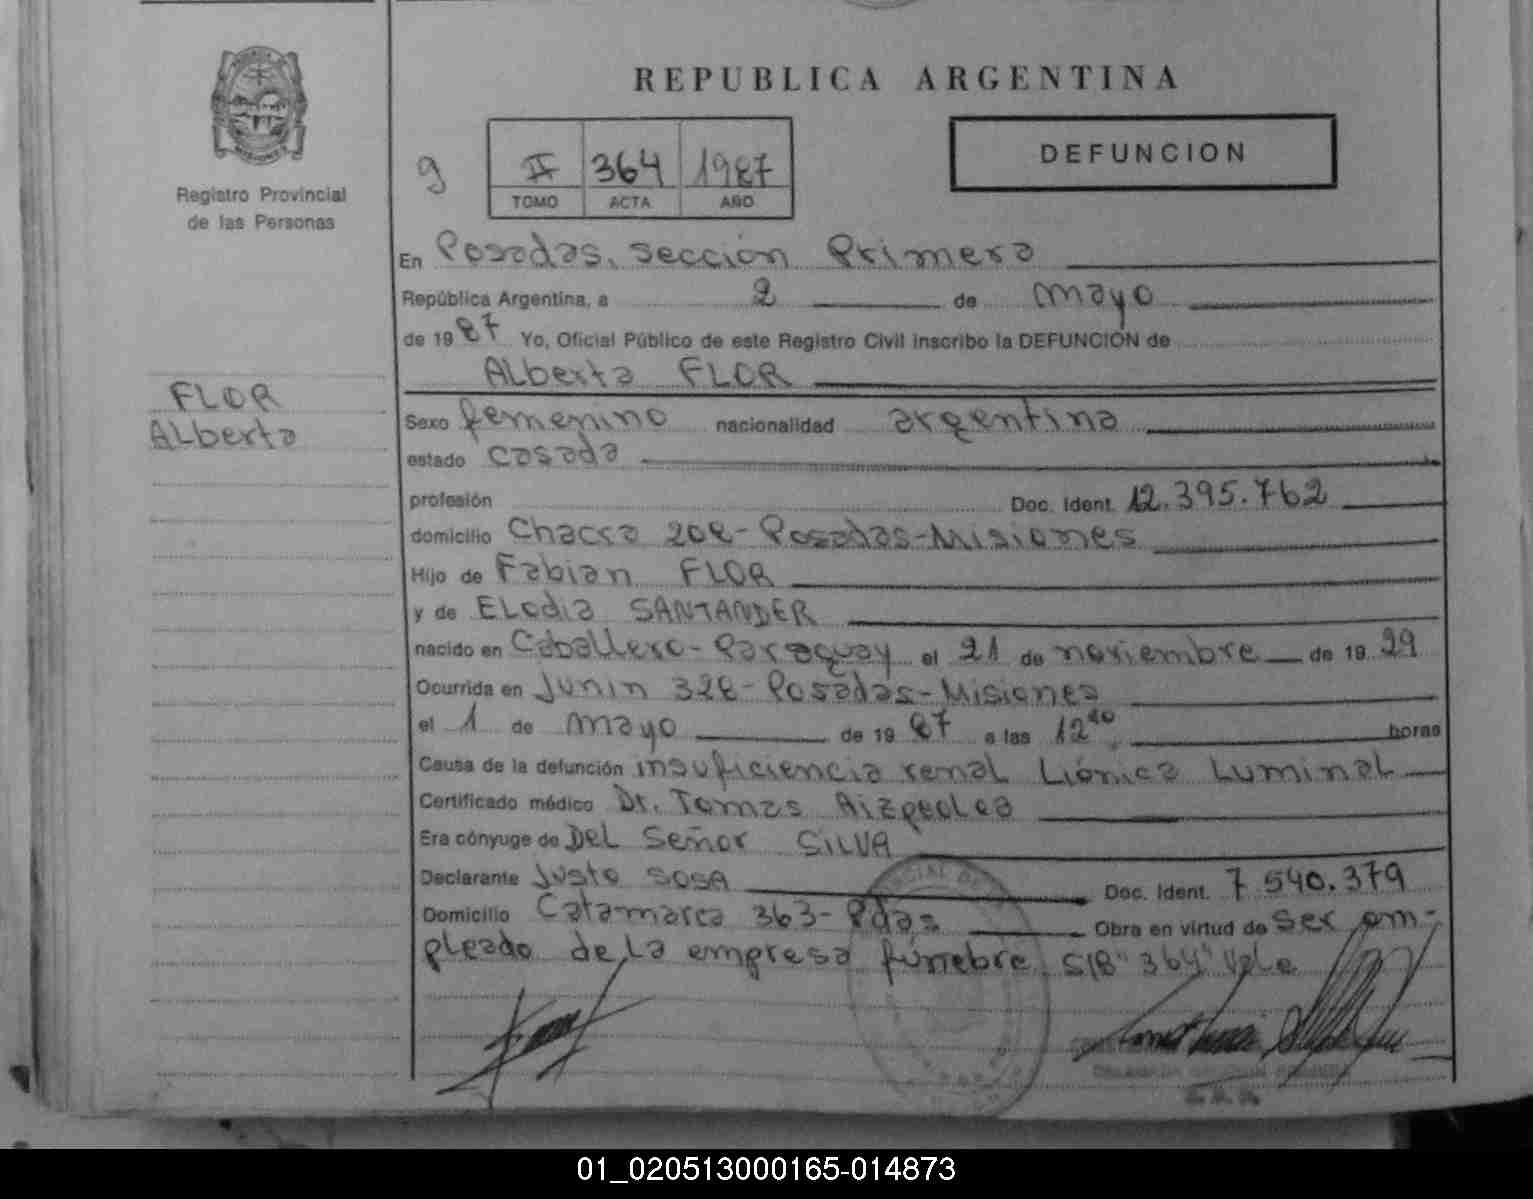 REPUBLICA ARGENTINA
DEFUNCION
MISIONES
Registro Provincial
de las Personas
g
II 364 1987
TOMO ACTA AÑO
En Posadas, sección Primera
República Argentina, a 2 de mayo
de 1987 Yo, Oficial Público de este Registro Civil inscribo la DEFUNCION de
Alberta FLOR
FLOR
Alberta
Sexo femenino nacionalidad argentina
estado casada
profesión Doc. Ident. 12.395.762
domicilio Chacra 208-Posadas-Misiones
Hijo de Fabian FLOR
y de Elodia SANTANDER
nacido en Caballero-Paraguay el 21 de noviembre de 1929
Ocurrida en Junin 328-Posadas-Misiones
el 1 de mayo de 1987 a las 12 horas
Causa de la defunción insuficiencia renal Liónica Luminal
Certificado médico Dr. Tomas Aizpeolea
Era cónyuge de Del Señor SILVA
Declarante Justo SOSA Doc. Ident. 7 540.379
Domicilio Catamarca 363-Pdas Obra en virtud de ser em-
pleado de la empresa fúnebre S/B "364" Vale
01_020513000165-014873